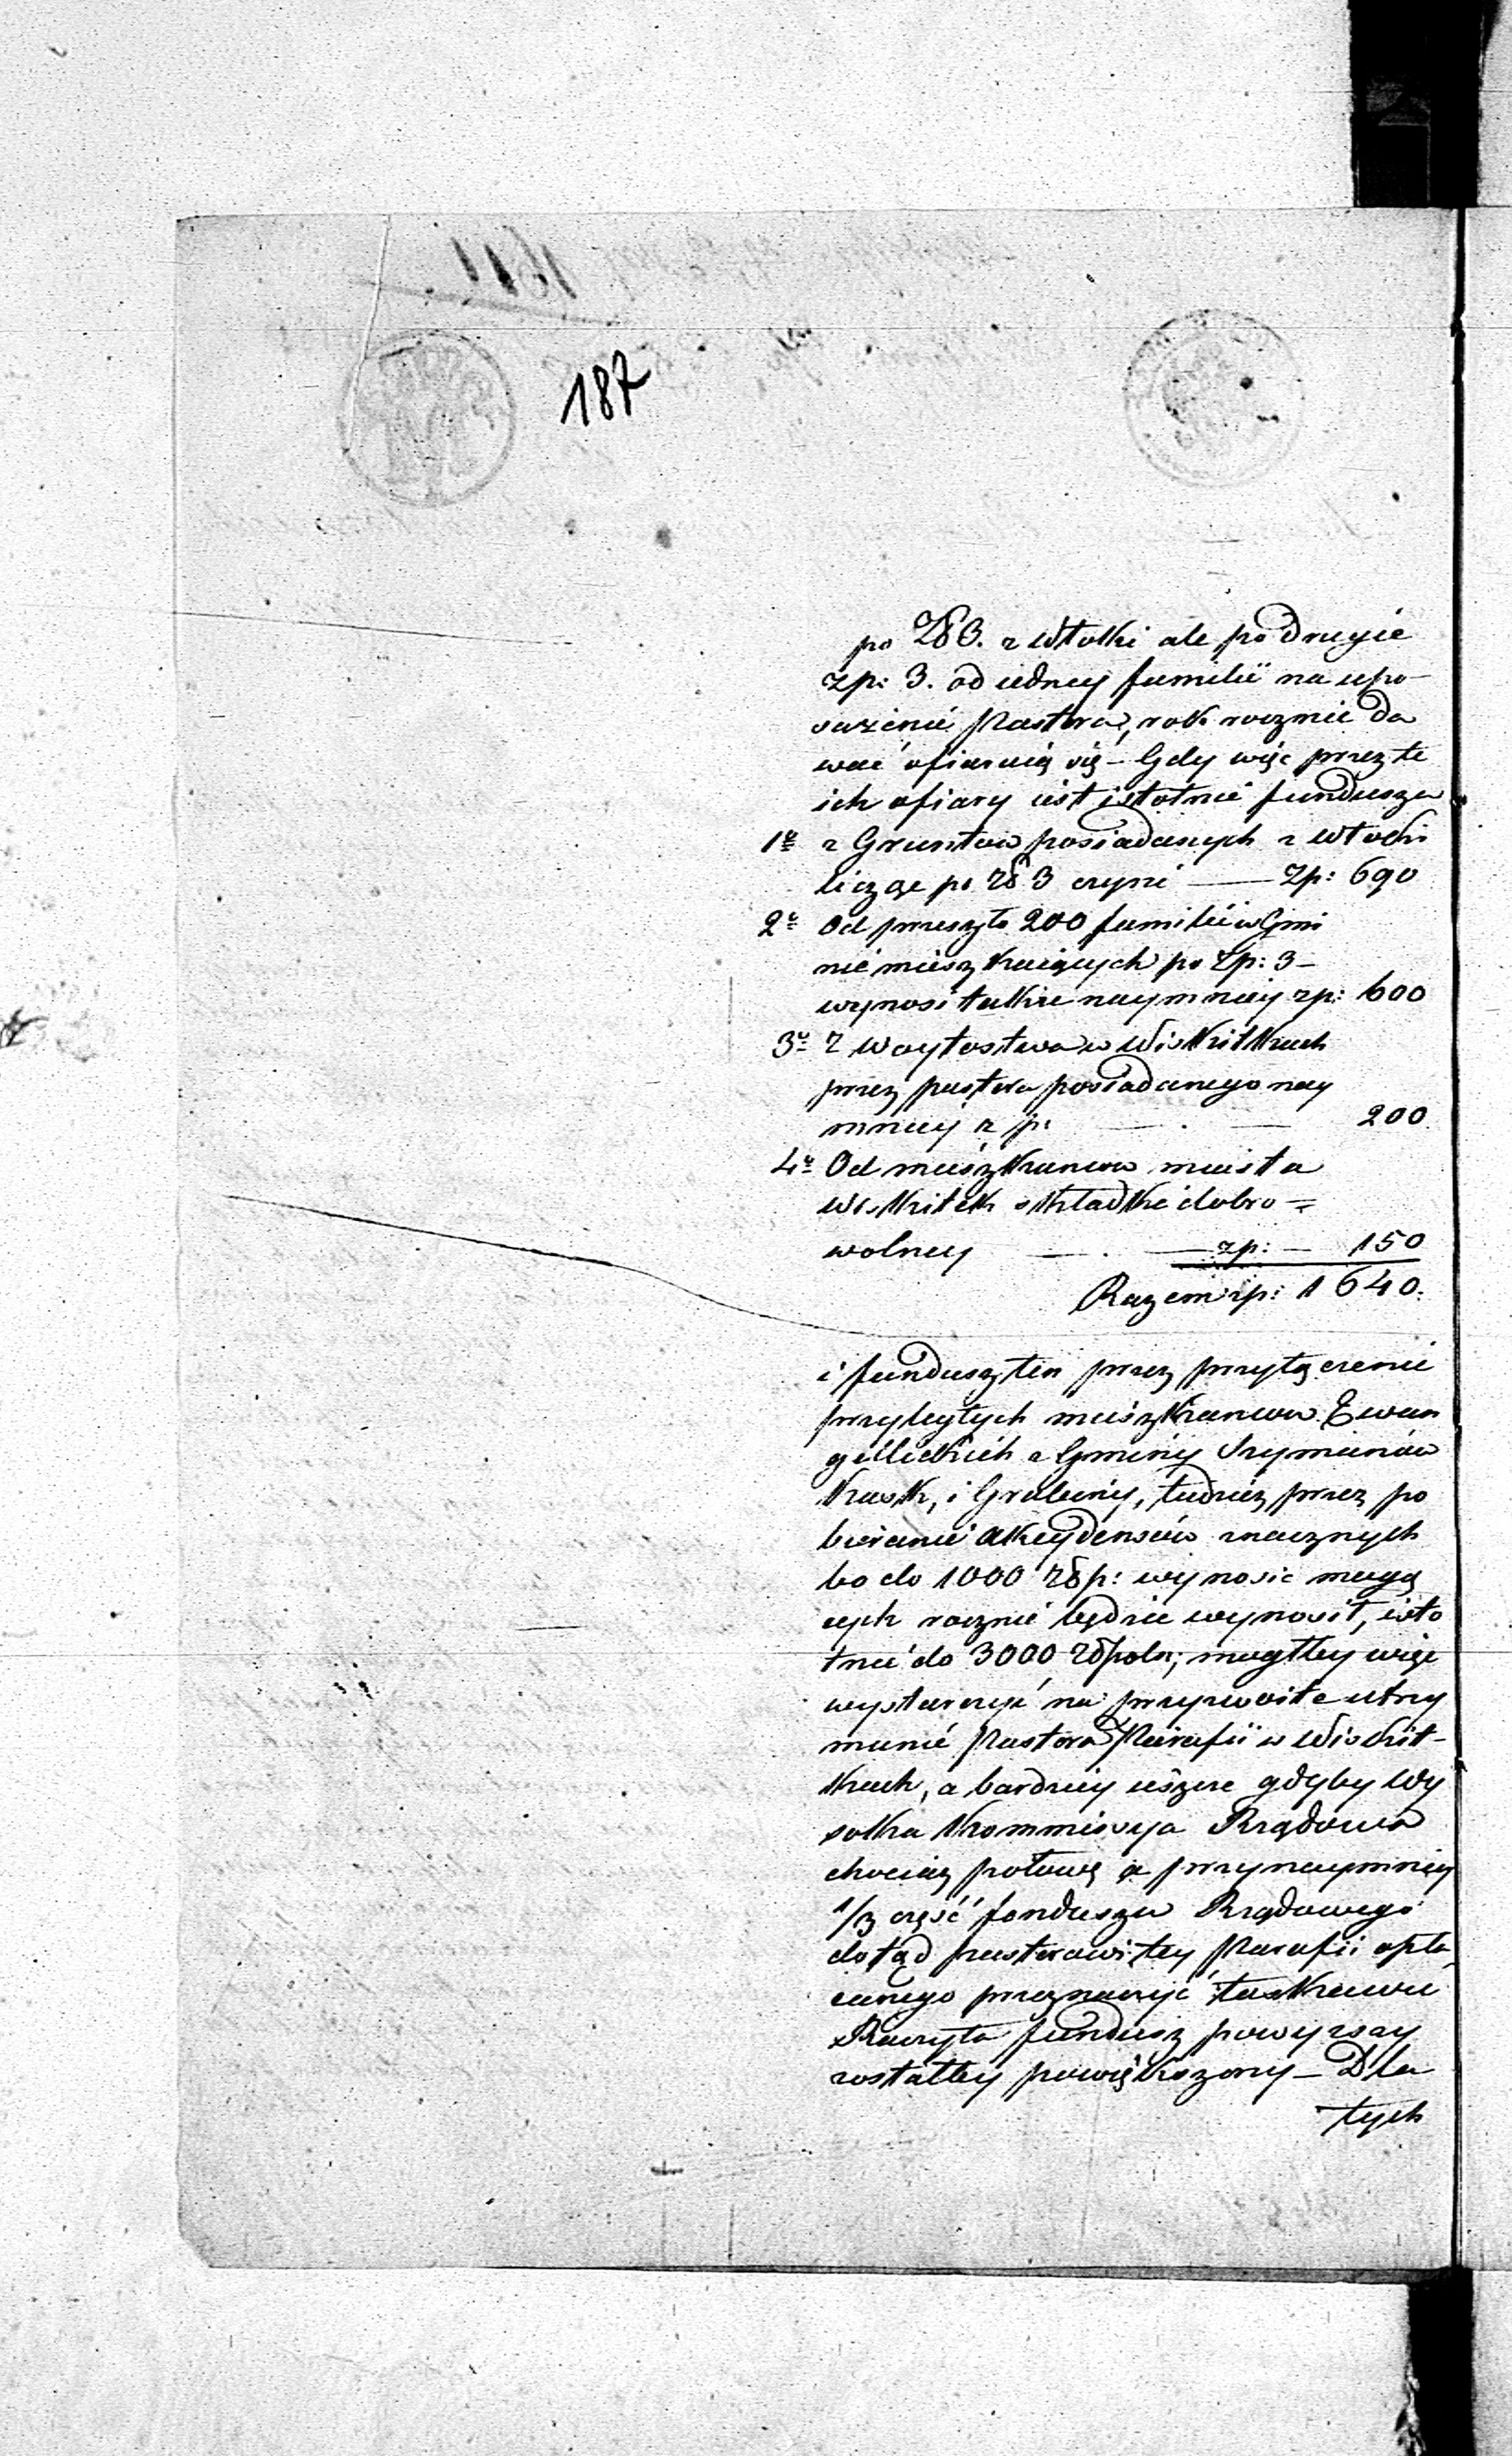 187
po Zł 3. z Włoki ale po drugie
zp: 3. od iedney familii na upo-
sażenie Pastora, rok rocznie da
wać ofiaruią się – Gdy więc przez te
ich ofiary iest istotnie funduszu
1e z Gruntow posiadanych z włoki
licząc po Zł 3 czyni — Zp: 690
2e Od przeszło 200 familii w Gmi
nie mieszkaiących po Zp: 3 –
wynosi także naymniey zp: 600
3e Z Woytostwa w Wiskitkach
przez pastora posiadanego nay
mniey z p: — . — 200
4e Od mieszkancow miasta
Wiskitek składki dobro=
wolney — . — zp: — 150
Razem zp: 1640.
i fundusz ten przez przyłączenie
przyległych mieszkancow Ewan
gellickich z Gminy Szymanów
Kask, i Grabiny, tudzież przez po
bieranie akcydensów znacznych
bo do 1000 Złp: wynosić mogą
cych rocznie będzie wynosił, isto
tnie do 3000 Zł poln; mogłby więc
wystarczyć na przyzwoite utrzy
manie Pastora Parafii w Wiskit-
kach, a bardziey ieszcze gdyby Wy
soka Kommissya Rządowa
chociaż połowę a przynaymniey
1/3 część funduszu Rządowego
dotąd pastorowi tey Parafii opła
canego przeznaczyć łaskawie
Raczyła fundusz powyższy
zostałby powiększony – Dla
tych